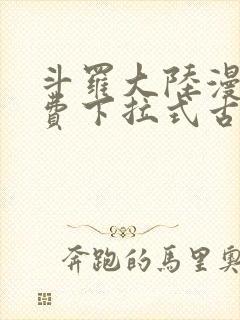 斗羅大陸漫
費下拉式古
奔跑的馬里奧